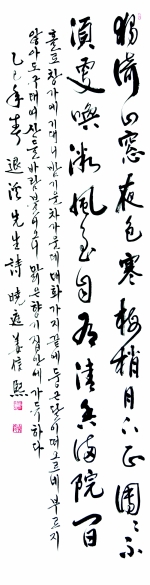 獨倚山窓夜色寒梅梢月上正團々不
須更喚微風至自有清香滿院間
홀로 창가에 기대니 밤기운 차가운데 매화가지 끝에 둥근 달이 떠오르네 부르지
않아도 구태여 산들바람 불어오니 맑은 향기 집안에 가득하다
乙巳年春 退溪先生詩 姜信熙